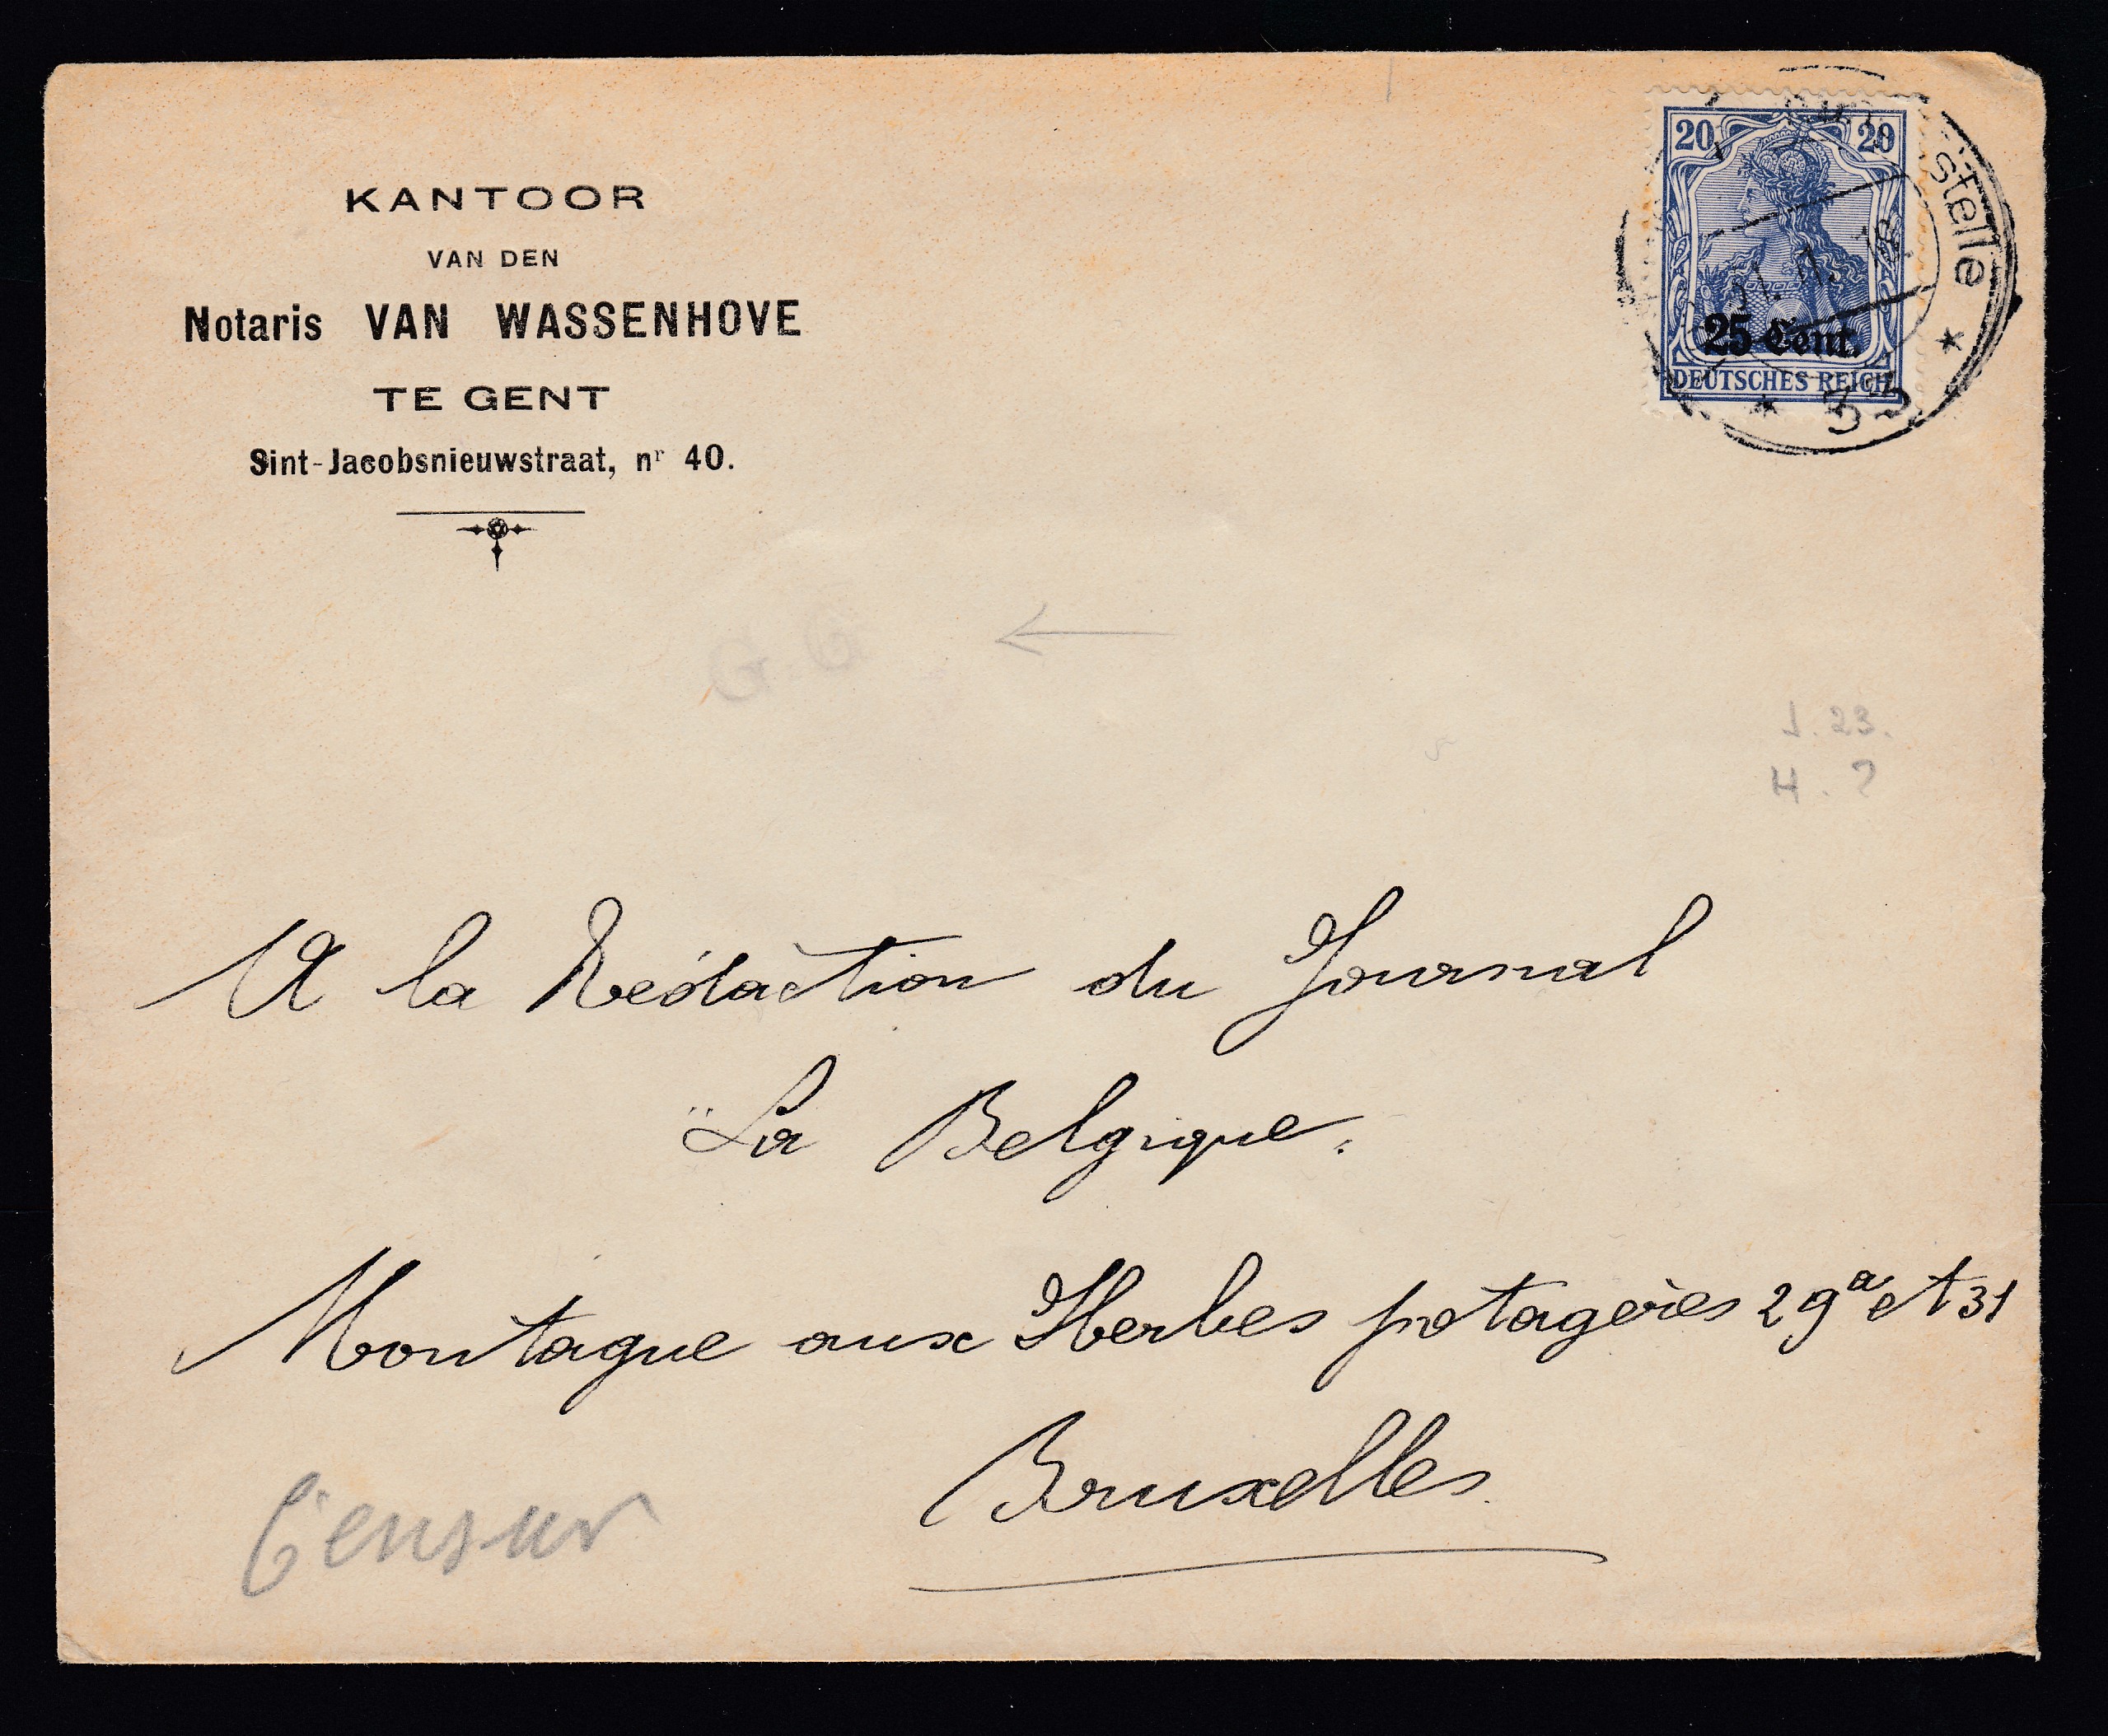 KANTOOR
VAN DEN
Notaris VAN WASSENHOVE
TE GENT
Sint-Jacobsnieuwstraat, nr 40.
20 20
25 Cent.
DEUTSCHES REICH
stelle
J. 23.
H. ?
A la Rédaction du Journal
"La Belgique.
Montagne aux Herbes potagères 29a et 31
Bruxelles
Censur